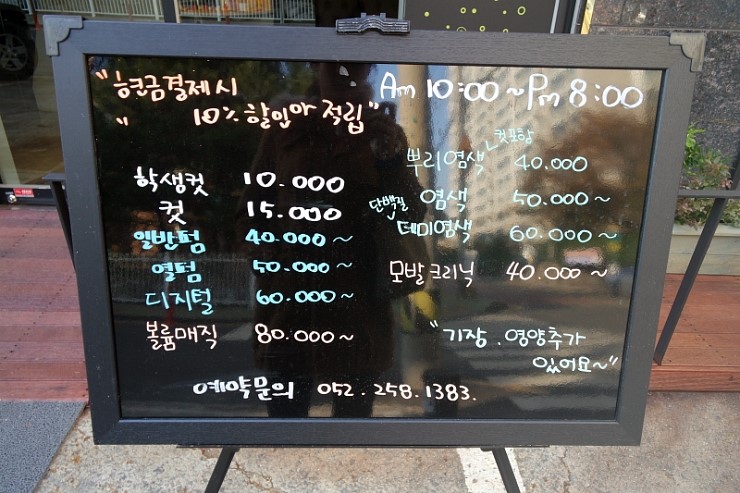 "현금결제시
" 10% 할인과 적립"
Am 10:00~Pm 8:00
학생컷 10.000
컷 15.000
일반펌 40.000~
열펌 50.000~
디지털 60.000~
볼륨매직 80.000~
컷포함
뿌리염색 40.000
단백질 염색 50.000~
데미염색 60.000~
모발크리닉 40.000~
"기장. 영양추가
있어요~"
예약문의 052.258.1383.